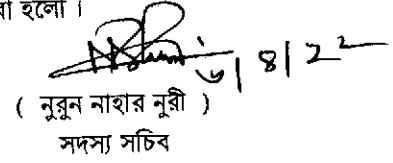 হলো ।
৬/৪/২২
( নুরুন নাহার নুরী )
সদস্য সচিব